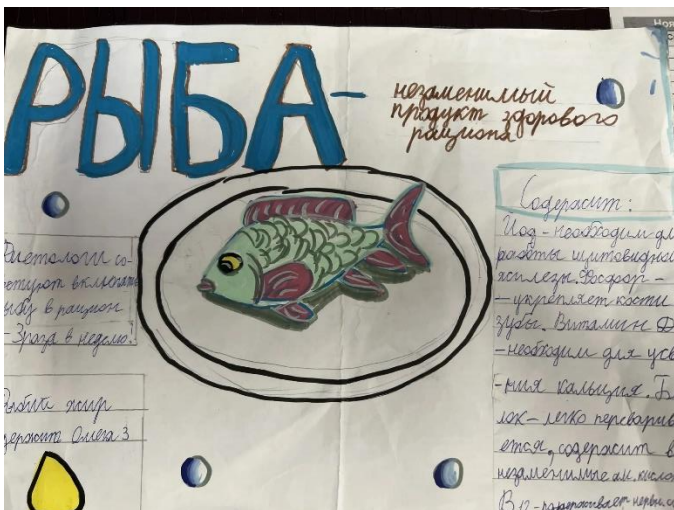 РЫБА-
незаменимый
продукт здорового
рациона
Диетологи со-
ветуют включать
рыбу в рацион
-3раза в неделю.
Рыбий жир
содержит Омега 3
Содержит:
Йод-необходим для
работы щитовидной
железы. Фосфор-
-укрепляет кости
зубы. Витамин Д
-необходим для усв
-ния кальция. Б
лок-легко перевари
ется, содержит в
незаменимые ам. кисло
В12-поддерживает нервн. с